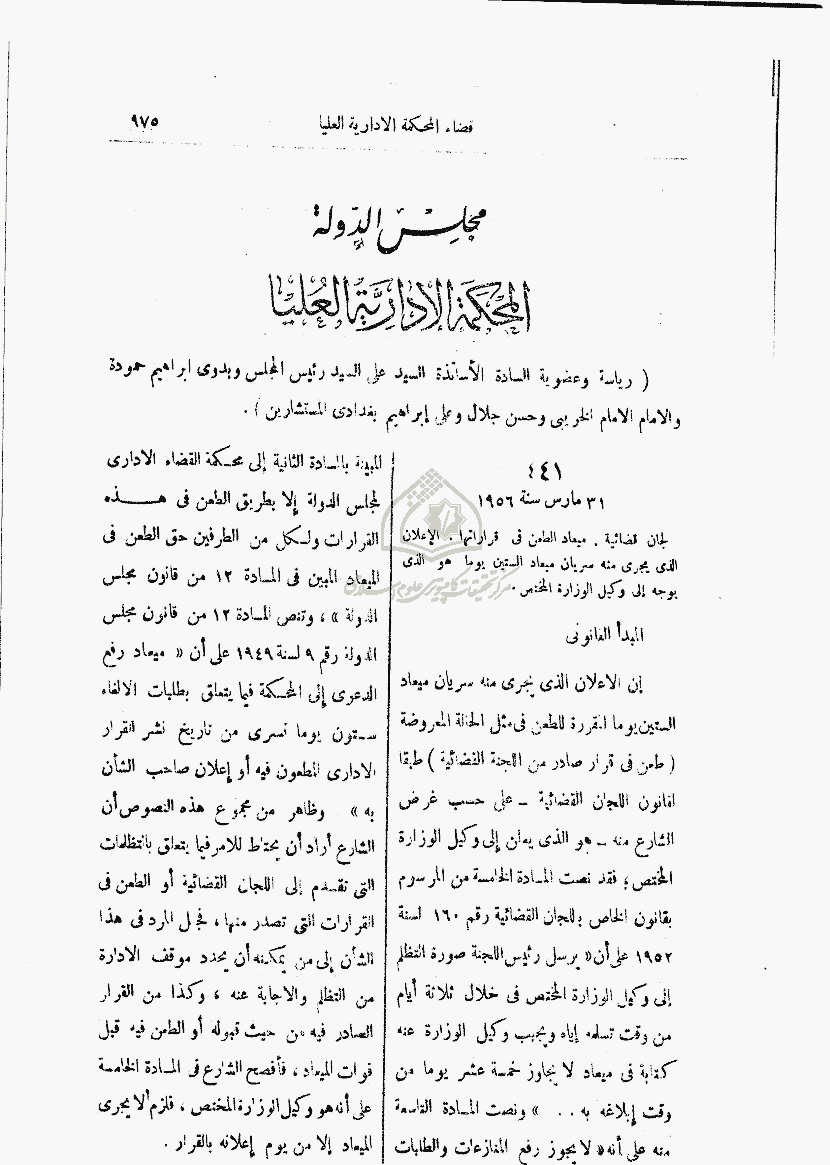 قضاء المحكمة الادارية العليا ٩٧٥
مجلس الدولة
المحكمة الادارية العليا
( رياسة وعضوية السادة الأساتذة السيد على السيد رئيس المجلس وبدوى ابراهيم حمودة
والامام الامام الخريبى وحسن جلال وعلى إبراهيم بغدادى المستشارين ) .
٤٤١
٣١ مارس سنة ١٩٥٦
لجان قضائية . ميعاد الطعن فى قراراتها . الإعلان
الذى يجرى منه سريان ميعاد الستين يوما هو الذى
يوجه إلى وكيل الوزارة المختص .
المبدأ القانونى
إن الاعلان الذى يجرى منه سريان ميعاد
الستين يوما المقررة للطعن فى مثل الحالة المعروضة
( طعن فى قرار صادر من اللجنة القضائية ) طبقا
لقانون اللجان القضائية – على حسب غرض
الشارع منه – هو الذى يعلن إلى وكيل الوزارة
المختص ؛ فقد نصت المادة الخامسة من المرسوم
بقانون الخاص باللجان القضائية رقم ١٦٠ لسنة
١٩٥٢ على أن « يرسل رئيس اللجنة صورة التظلم
إلى وكيل الوزارة المختص فى خلال ثلاثة أيام
من وقت تسلمه إياه ويجيب وكيل الوزارة عنه
كتابة فى ميعاد لا يجاوز خمسة عشر يوما من
وقت إبلاغه به . . » ونصت المادة التاسعة
منه على أنه « لا يجوز رفع المنازعات والطلبات
المبينة بالمادة الثانية إلى محكمة القضاء الادارى
لمجلس الدولة إلا بطريق الطعن فى هذه
القرارات ولكل من الطرفين حق الطعن فى
الميعاد المبين فى المادة ١٢ من قانون مجلس
الدولة » ، وتنص المادة ١٢ من قانون مجلس
الدولة رقم ٩ لسنة ١٩٤٩ على أن « ميعاد رفع
الدعوى إلى المحكمة فيما يتعلق بطلبات الالغاء
ستون يوما تسرى من تاريخ نشر القرار
الادارى المطعون فيه أو إعلان صاحب الشأن
به » وظاهر من مجموع هذه النصوص أن
الشارع أراد أن يحتاط للامر فيما يتعلق بالتظلمات
التى تقدم إلى اللجان القضائية أو الطعن فى
القرارات التى تصدر منها ، فجعل المرد فى هذا
الشأن إلى من يمكنه أن يحدد موقف الادارة
من التظلم والاجابة عنه ، وكذا من القرار
الصادر فيه من حيث قبوله أو الطعن فيه قبل
فوات الميعاد ، فأفصح الشارع فى المادة الخامسة
على أنه هو وكيل الوزارة المختص ، فلزم ألا يجرى
الميعاد إلا من يوم إعلانه بالقرار .